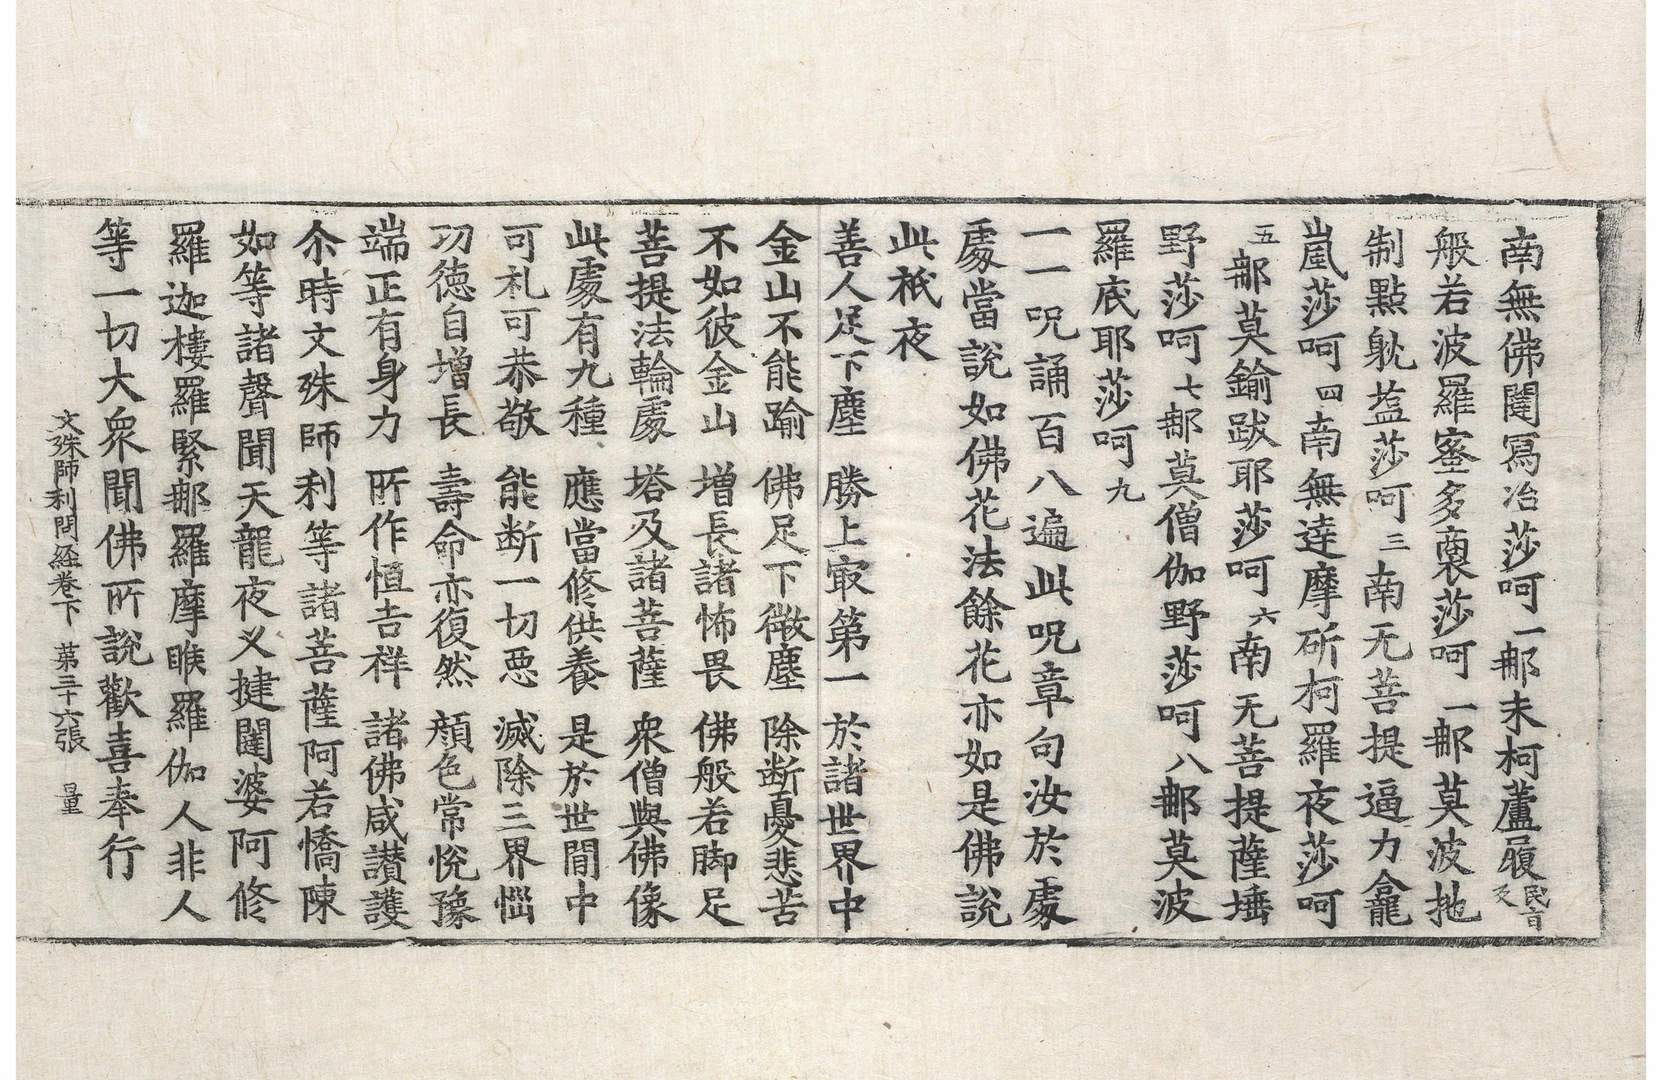 南無佛闥寫冶莎呵一那未柯蘆履民音反
般若波羅蜜多裒莎呵一那莫波拖
制點躭葢莎呵三南无菩提逼力龕
嵐莎呵四南無達摩斫柯羅夜莎呵
五那莫鍮跋耶莎呵六南无菩提薩埵
野莎呵七那莫僧伽野莎呵八那莫波
羅底耶莎呵九
一一呪誦百八遍此呪章句汝於處
處當說如佛花法餘花亦如是佛說
此祇夜
善人足下塵　勝上㝡第一　於諸世界中
金山不能踰　佛足下微塵　除断憂悲苦
不如彼金山　增長諸怖畏　佛般若脚足
菩提法輪處　塔及諸菩薩　衆僧與佛像
此處有九種　應當修供養　是於世間中
可礼可恭敬　能断一切惡　滅除三界惱
功德自增長　壽命亦復然　顔色常悅豫
端正有身力　所作恒吉祥　諸佛咸讃護
尒時文殊師利等諸菩薩阿若憍陳
如等諸聲聞天龍夜叉揵闥婆阿修
羅迦樓羅緊那羅摩睺羅伽人非人
等一切大衆聞佛所說歡喜奉行
文殊師利問経卷下　第三十六張　量